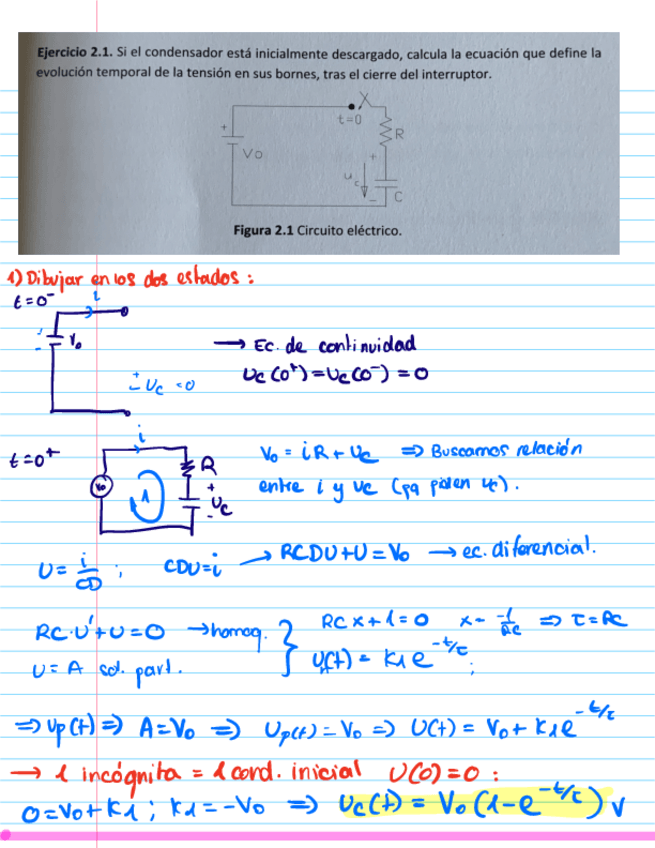 Ejercicio 2.1. Si el condensador está inicialmente descargado, calcula la ecuación que define la
evolución temporal de la tensión en sus bornes, tras el cierre del interruptor.
t=0
R
+
Vo
+
uc
-
C
Figura 2.1 Circuito eléctrico.
1) Dibujar en los dos estados:
t=0⁻
i
Vo
→ Ec. de continuidad
Uc(0⁺)=Uc(0⁻)=0
+
- Uc=0
t=0⁺
i
R
Vo
1
+
Uc
-
Vo = iR + Uc ⇒ Buscamos relación
entre i y uc (pq piden uc).
U = i/CD ; CDU=i → RCDU+U=Vo → ec. diferencial.
RC·U'+U=0 → homog. } RCx+1=0 x= -1/RC ⇒ τ=RC
U=A sol. part. Uh(t) = K1e^-t/τ;
⇒ Up(t) ⇒ A=Vo ⇒ Up(t)=Vo ⇒ U(t) = Vo+K1e^-t/τ
→ 1 incógnita = 1 cond. inicial U(0)=0:
0=Vo+K1; K1=-Vo ⇒ Uc(t) = Vo(1-e^-t/τ) V